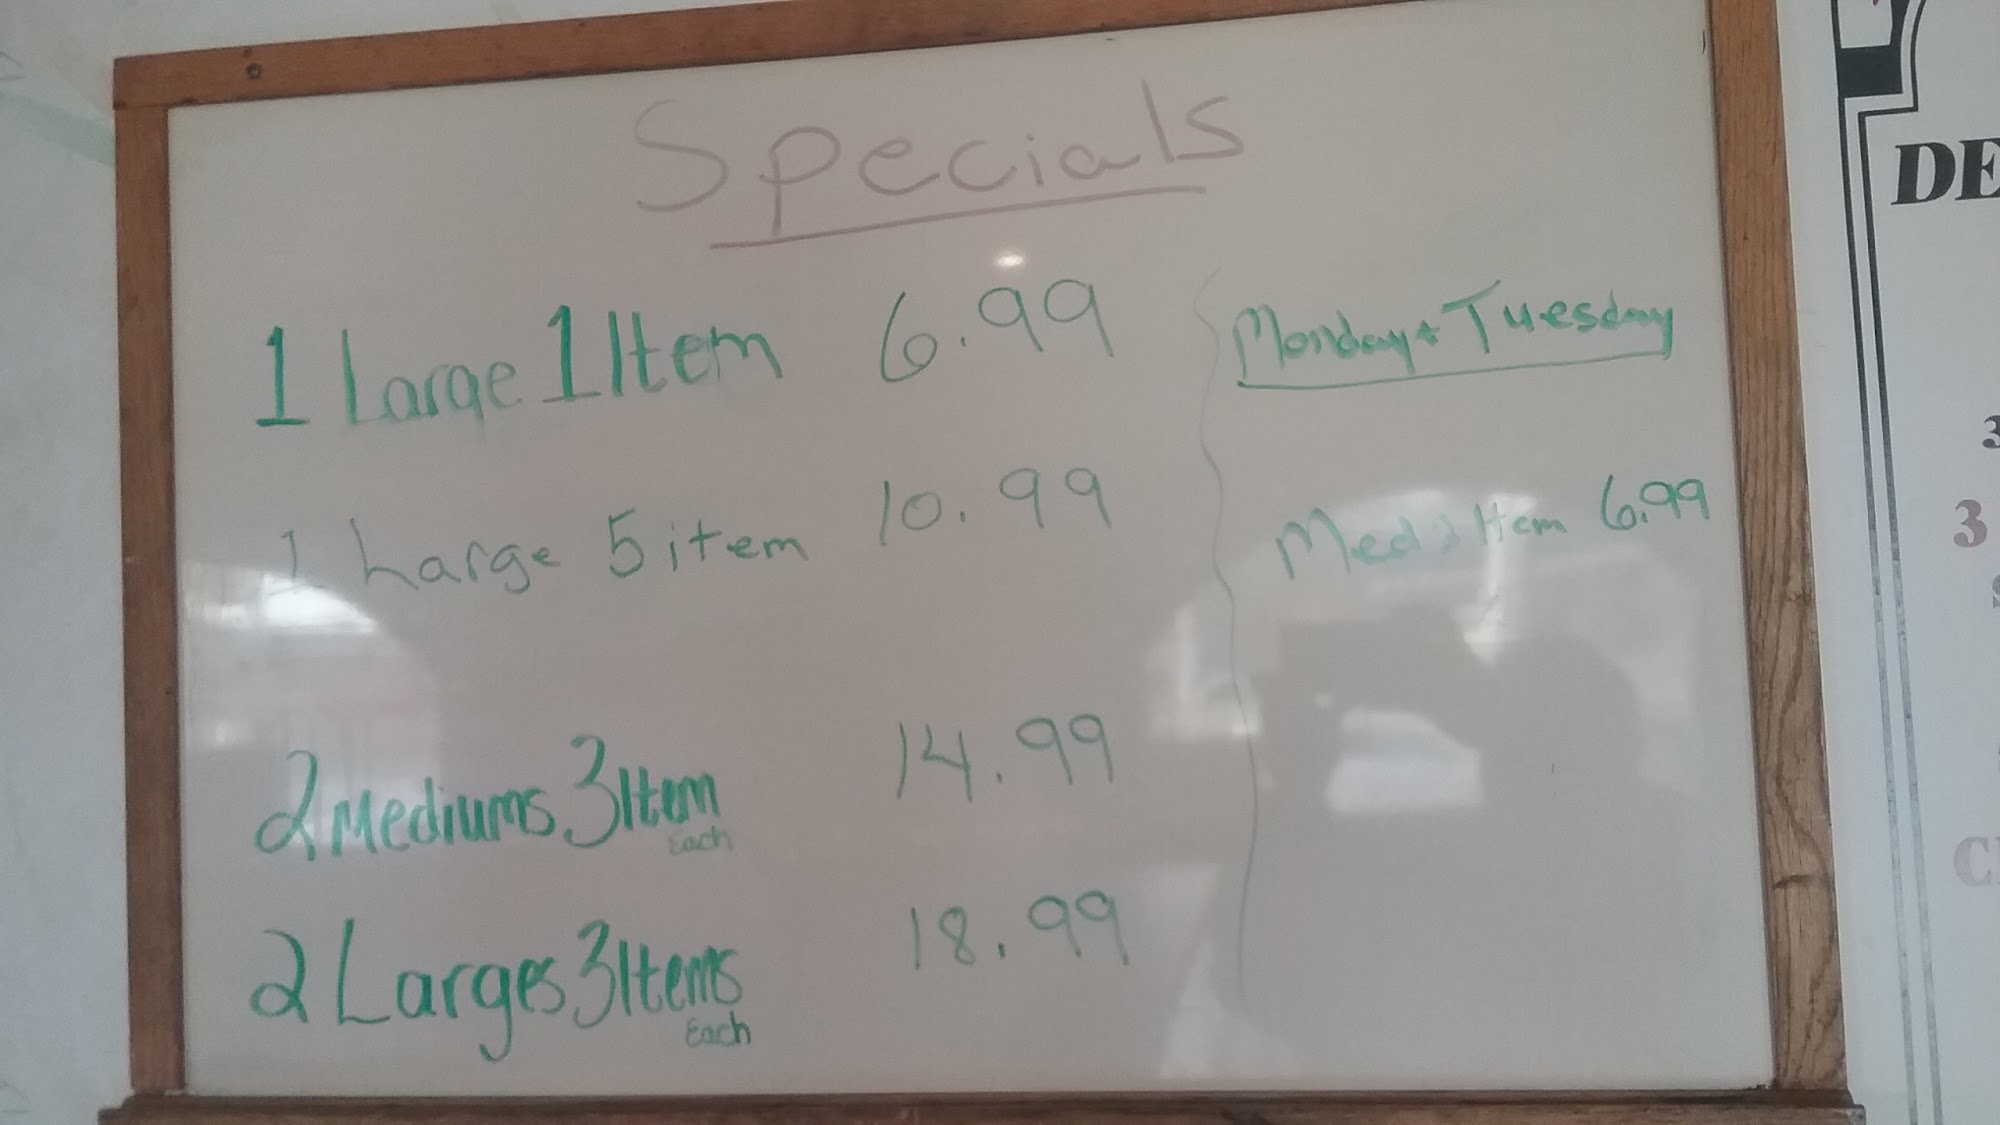 Specials
1 Large 1 Item 6.99
1 Large 5 item 10.99
2 Mediums 3 Item 14.99
Each
2 Larges 3 Items 18.99
Each
Monday + Tuesday
Med 2 Item 6.99
DE
3
3